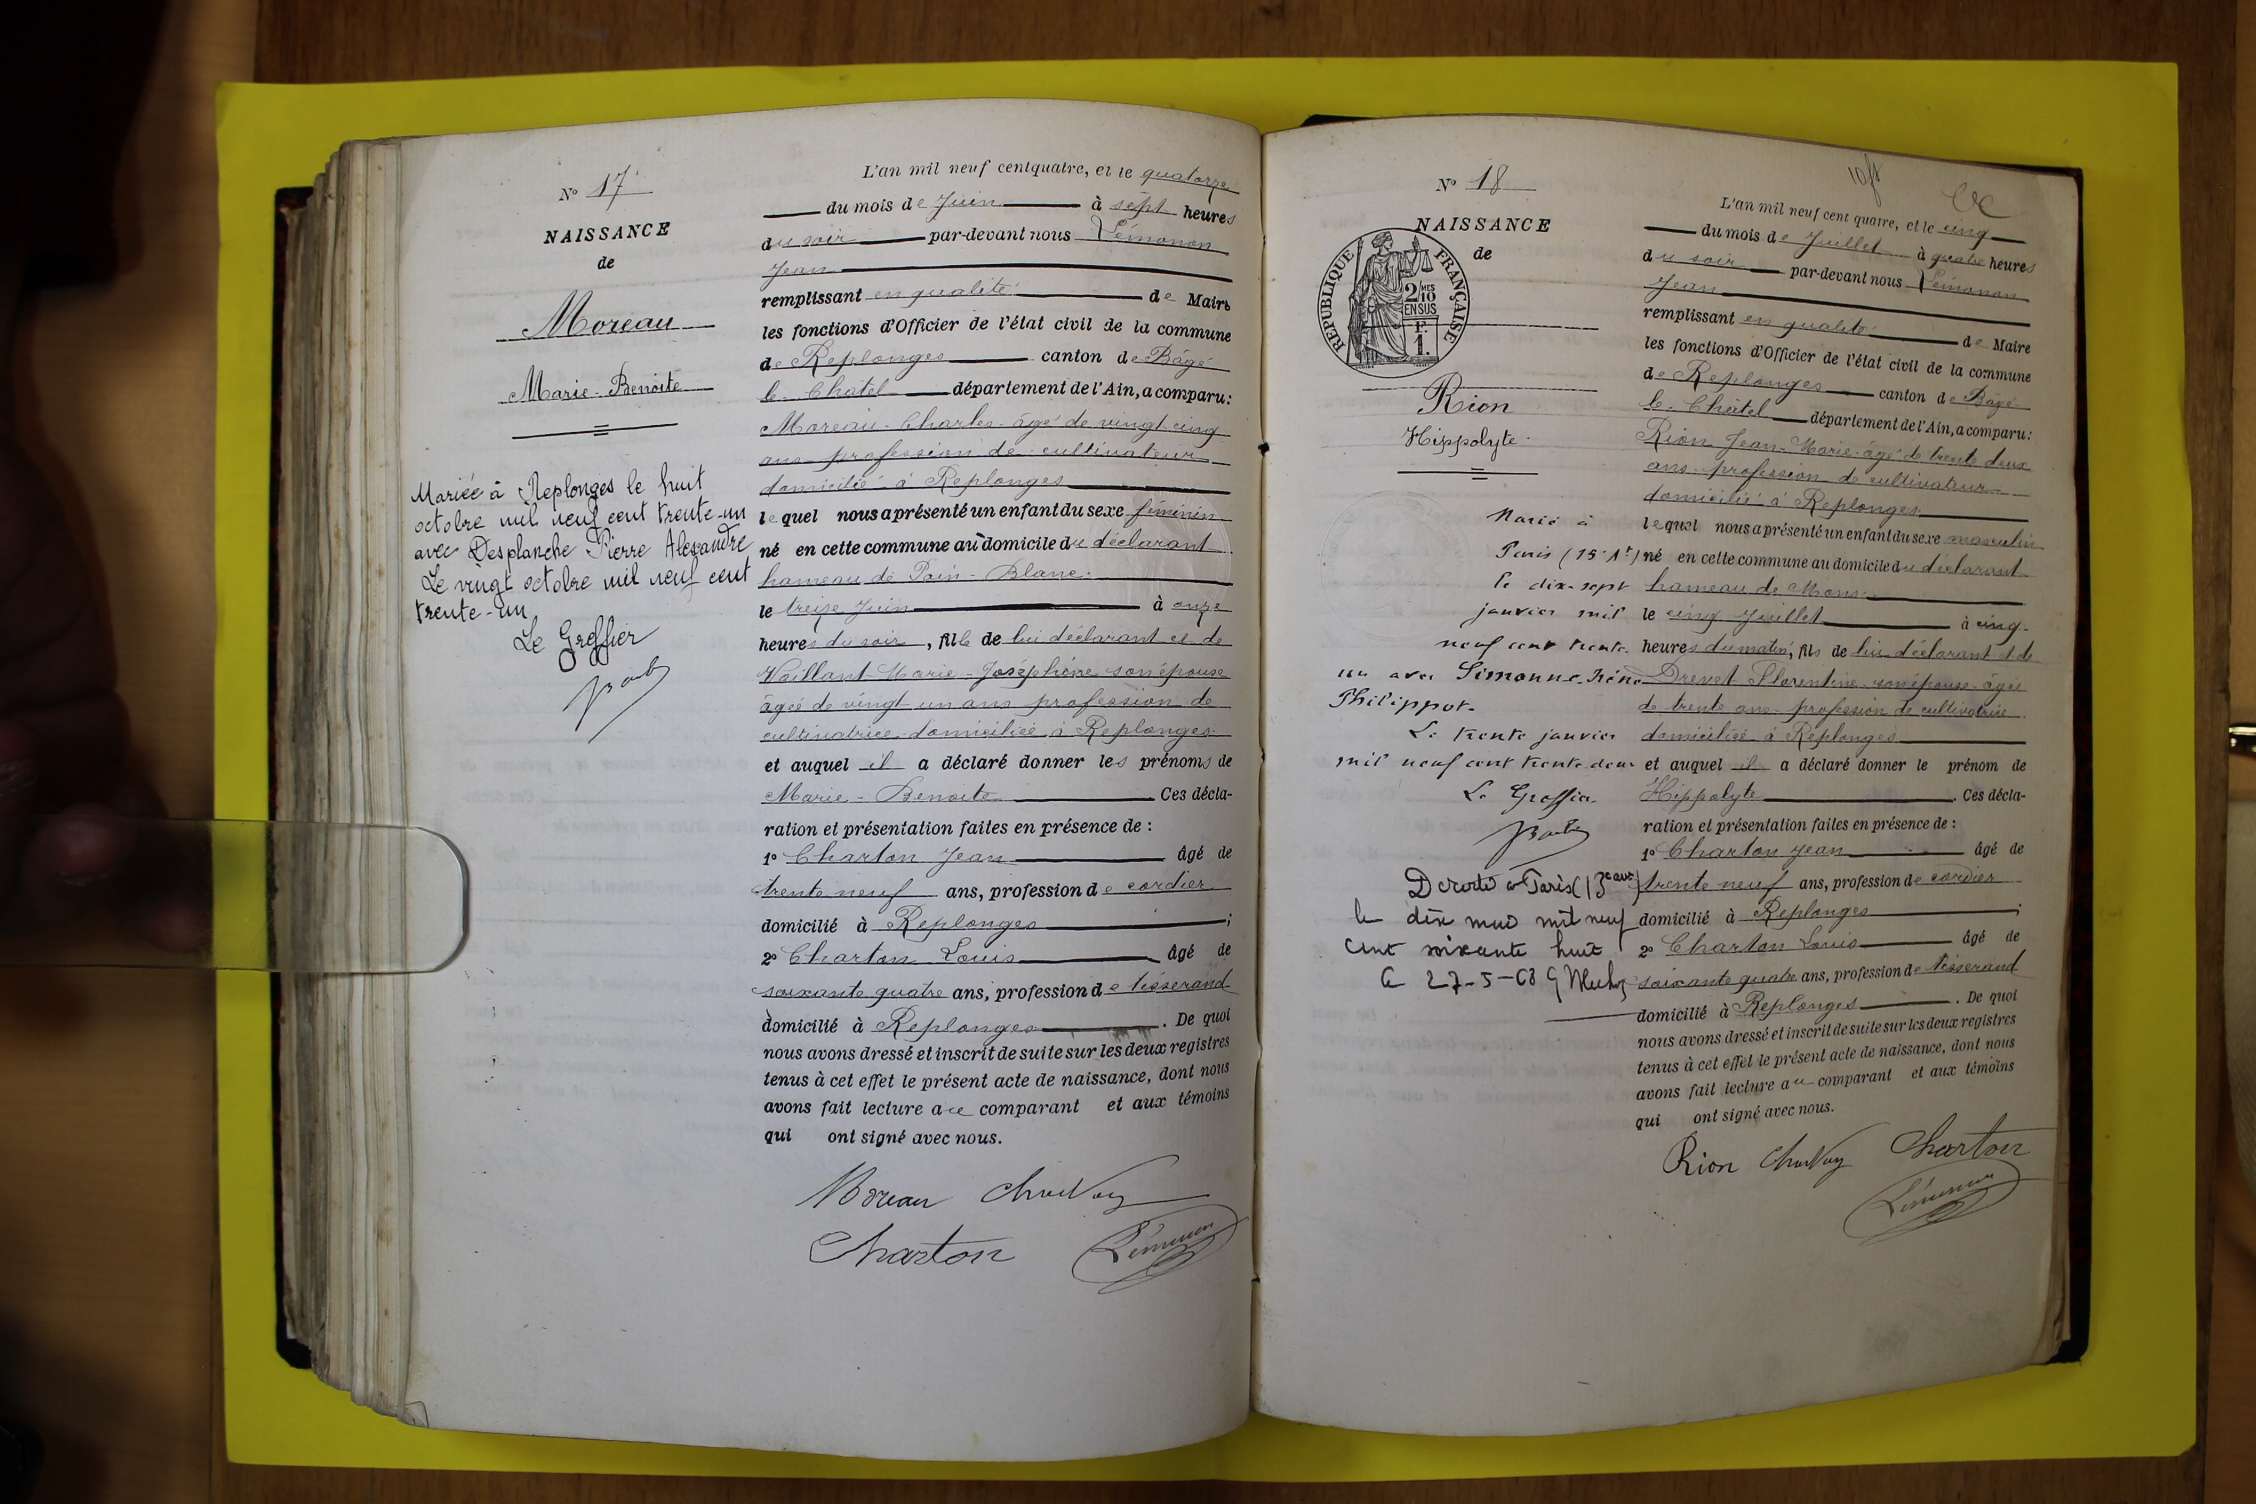 N° 17
NAISSANCE
de
Moreau
Marie-Benoite
Mariée à Replonges le huit
octobre mil neuf cent trente-un
avec Desplanche Pierre Alexandre
Le vingt octobre mil neuf cent
trente-un
Le Greffier
L'an mil neuf cent quatre, et le quatorze
du mois de Juin à sept heures
du soir par-devant nous Lémonon
Jean
remplissant en qualité de Maire
les fonctions d'Officier de l'état civil de la commune
de Replonges canton de Bâgé
le Châtel département de l'Ain, a comparu:
Moreau Charles âgé de vingt cinq
ans profession de cultivateur
domicilié à Replonges
lequel nous a présenté un enfant du sexe féminin
né en cette commune au domicile du déclarant
hameau de Pain-Blanc
le treize Juin à onze
heures du soir, fille de lui déclarant et de
Vaillant Marie-Joséphine son épouse
âgée de vingt un ans profession de
cultivatrice domiciliée à Replonges
et auquel il a déclaré donner les prénoms de
Marie-Benoite Ces décla-
ration et présentation faites en présence de :
1° Charton Jean âgé de
trente neuf ans, profession de cordier
domicilié à Replonges ;
2° Charton Louis âgé de
soixante quatre ans, profession de tisserand
domicilié à Replonges. De quoi
nous avons dressé et inscrit de suite sur les deux registres
tenus à cet effet le présent acte de naissance, dont nous
avons fait lecture au comparant et aux témoins
qui ont signé avec nous.
Moreau Charton
Charton Lémonon
N° 18
NAISSANCE
de
RÉPUBLIQUE FRANÇAISE
2/10 MES
EN SUS
1.
Rion
Hippolyte
Marié à
Paris (15e Art)
le dix-sept
janvier mil
neuf cent trente-
un avec Simonne Irène
Philippot.
Le trente janvier
mil neuf cent trente deux
Le Greffier
Décédé à Paris (13e arrt)
le dix mai mil neuf
cent soixante huit
Le 27-5-68
L'an mil neuf cent quatre, et le cinq
du mois de Juillet à quatre heures
du soir par-devant nous Lémonon
Jean
remplissant en qualité de Maire
les fonctions d'Officier de l'état civil de la commune
de Replonges canton de Bâgé
le Châtel département de l'Ain, a comparu:
Rion Jean-Marie âgé de trente deux
ans profession de cultivateur
domicilié à Replonges
lequel nous a présenté un enfant du sexe masculin
né en cette commune au domicile du déclarant
hameau de Mons
le cinq Juillet à cinq
heures du matin, fils de lui déclarant et de
Drevet Florentine son épouse âgée
de trente ans profession de cultivatrice
domiciliée à Replonges
et auquel il a déclaré donner le prénom de
Hippolyte. Ces décla-
ration et présentation faites en présence de :
1° Charton Jean âgé de
trente neuf ans, profession de cordier
domicilié à Replonges ;
2° Charton Louis âgé de
soixante quatre ans, profession de tisserand
domicilié à Replonges. De quoi
nous avons dressé et inscrit de suite sur les deux registres
tenus à cet effet le présent acte de naissance, dont nous
avons fait lecture au comparant et aux témoins
qui ont signé avec nous.
Rion Charton Charton
Lémonon